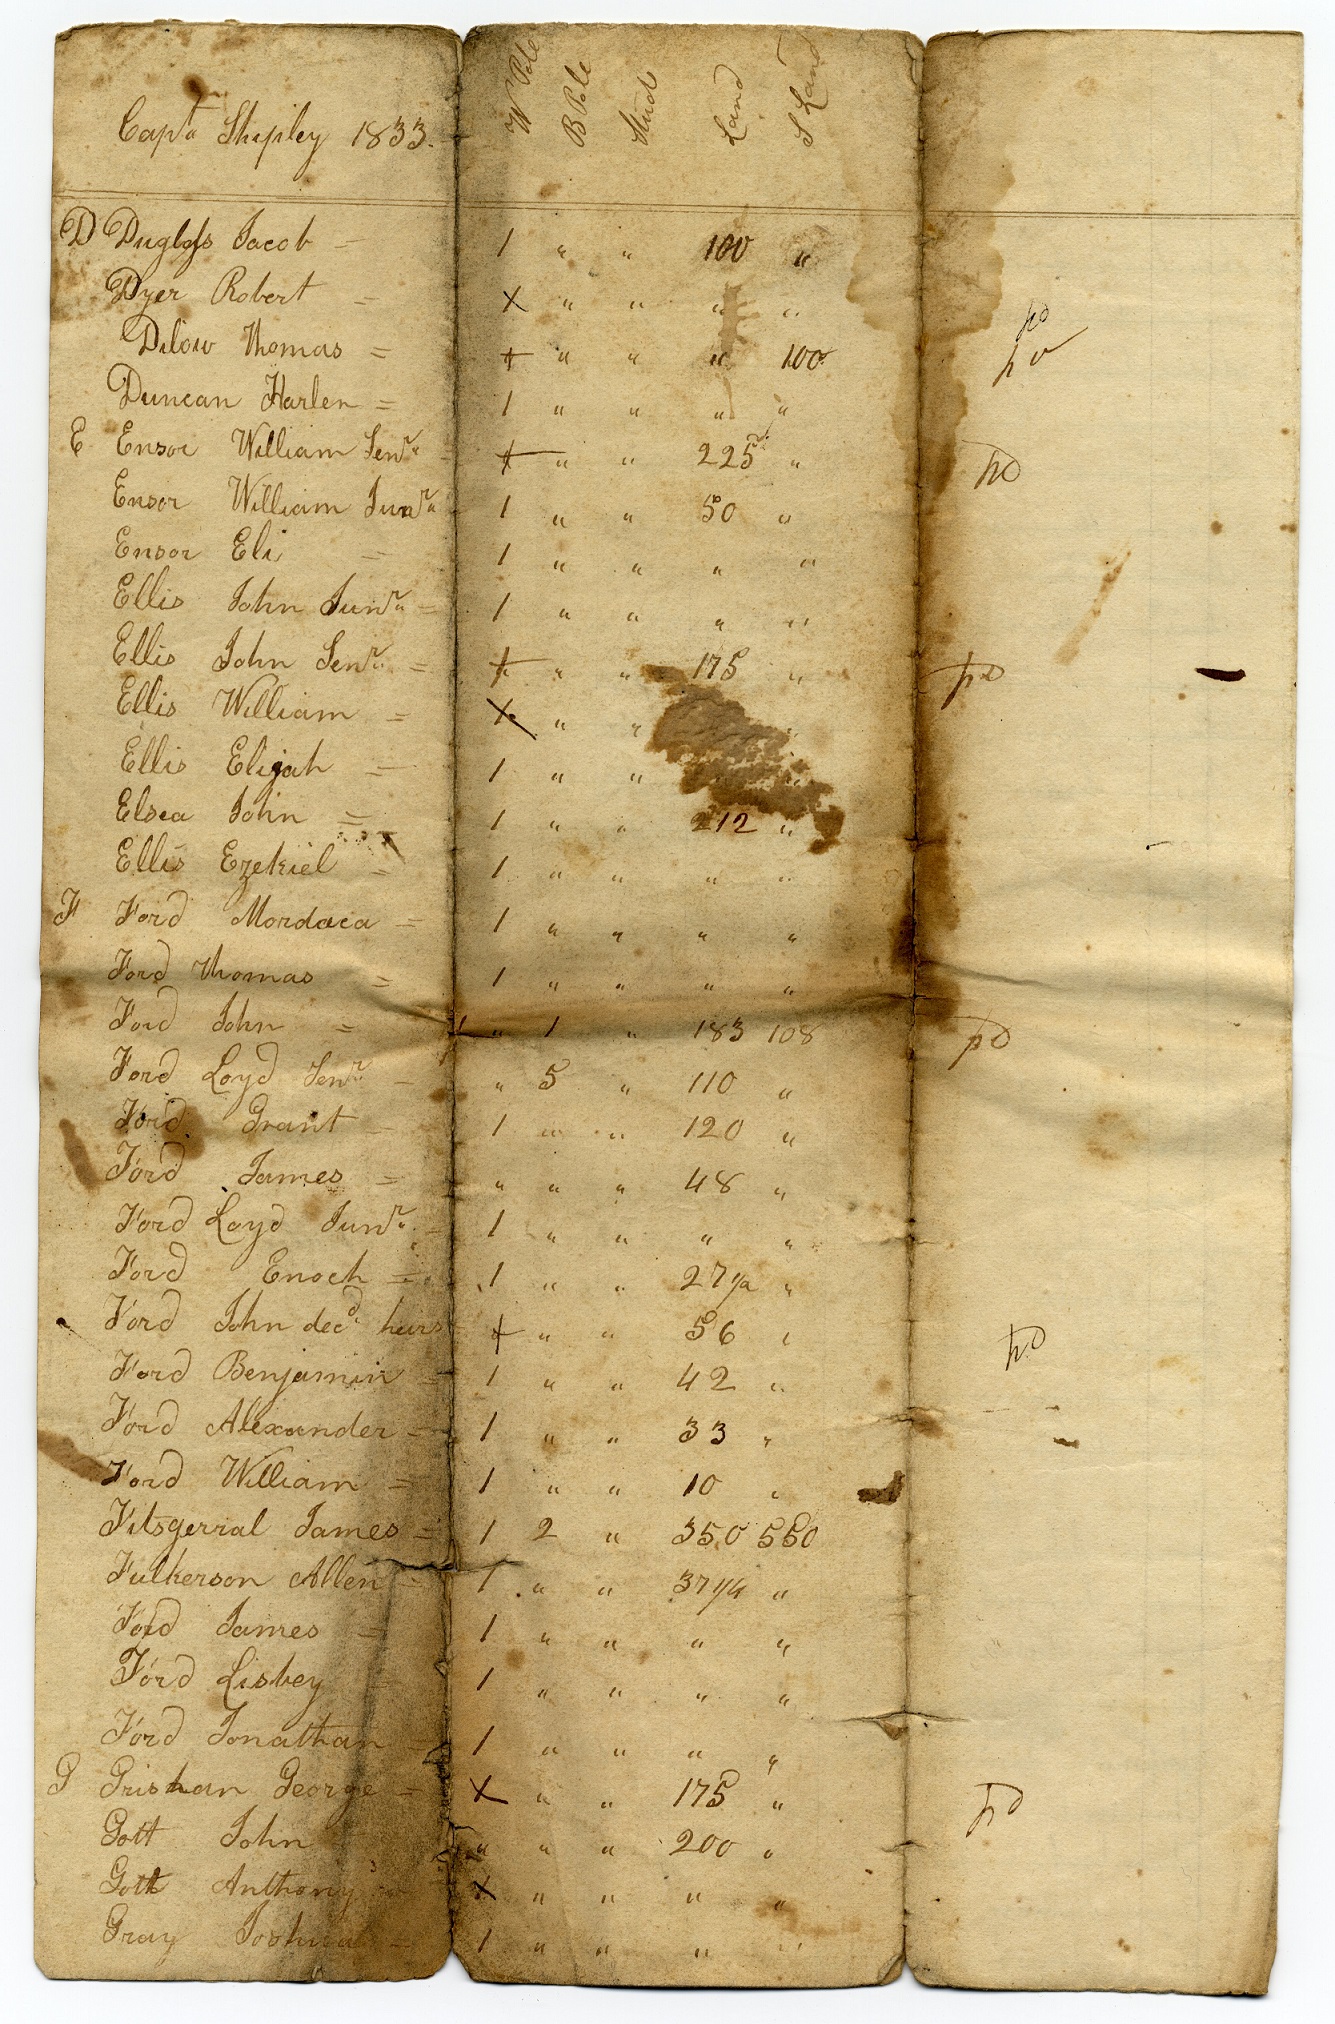 Capta Shipley 1833. W Pole B Pole Stud Land S Land
D Duglass Jacob = 1 " " 100 "
Dyer Robert = X " " " " pd
Dilow Thomas = + " " " 100 pd
Duncan Harlen = 1 " " " "
E Ensor William Senr + " " 225 " pd
Ensor William Junr 1 " " 50 "
Ensor Eli = 1 " " " "
Ellis John Junr = 1 " " " "
Ellis John Senr = + " " 175 " pd
Ellis William = X " " "
Ellis Elijah = 1 " " "
Elsea John = 1 " " 212 "
Ellis Ezekiel = 1 " " " "
F Ford Mordaca = 1 " " " "
Ford Thomas = 1 " " " "
Ford John = " 1 " 183 108 pd
Ford Loyd Senr = " 5 " 110 "
Ford Grant = 1 " " 120 "
Ford James = " " " 48 "
Ford Loyd Junr = 1 " " " "
Ford Enoch = 1 " " 27 1/2 "
Ford John decd heirs + " " 56 " pd
Ford Benjamin = 1 " " 42 "
Ford Alexander = 1 " " 33 "
Ford William = 1 " " 10 "
Fitsgerral James = 1 2 " 350 550
Fulkerson Allen = 1 " " 37 1/4 "
Ford James = 1 " " " "
Ford Lisbey = 1 " " " "
Ford Jonathan = 1 " " " "
G Grishan George = X " " 175 " pd
Gott John " " " 200 "
Gott Anthony = X " " " "
Gray Joshua = 1 " " " "